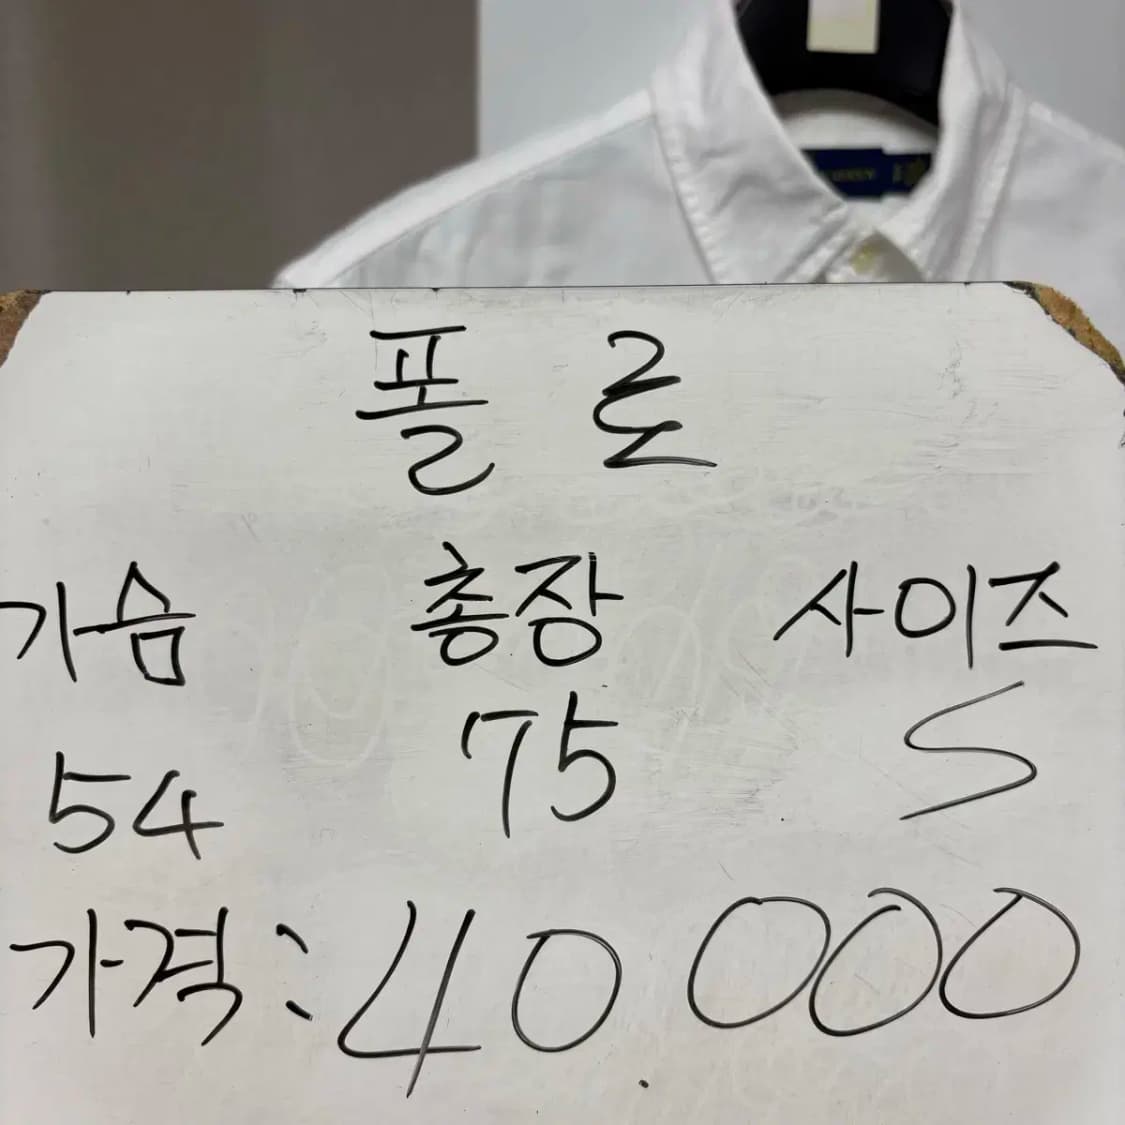 폴로
가슴 총장 사이즈
54 75 S
가격: 40.000